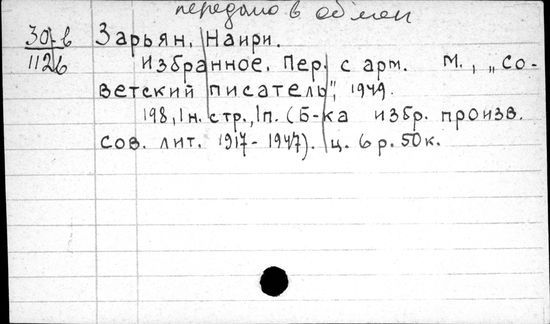 передано в обмен
30-в
1126
Зарьян, Наири.
Избранное. Пер. с арм. М., „Со-
ветский писатель", 1949.
198, 1н. стр., 1п. (Б-ка избр. произв.
сов. лит. 1917-1947). ц. 6 р. 50к.